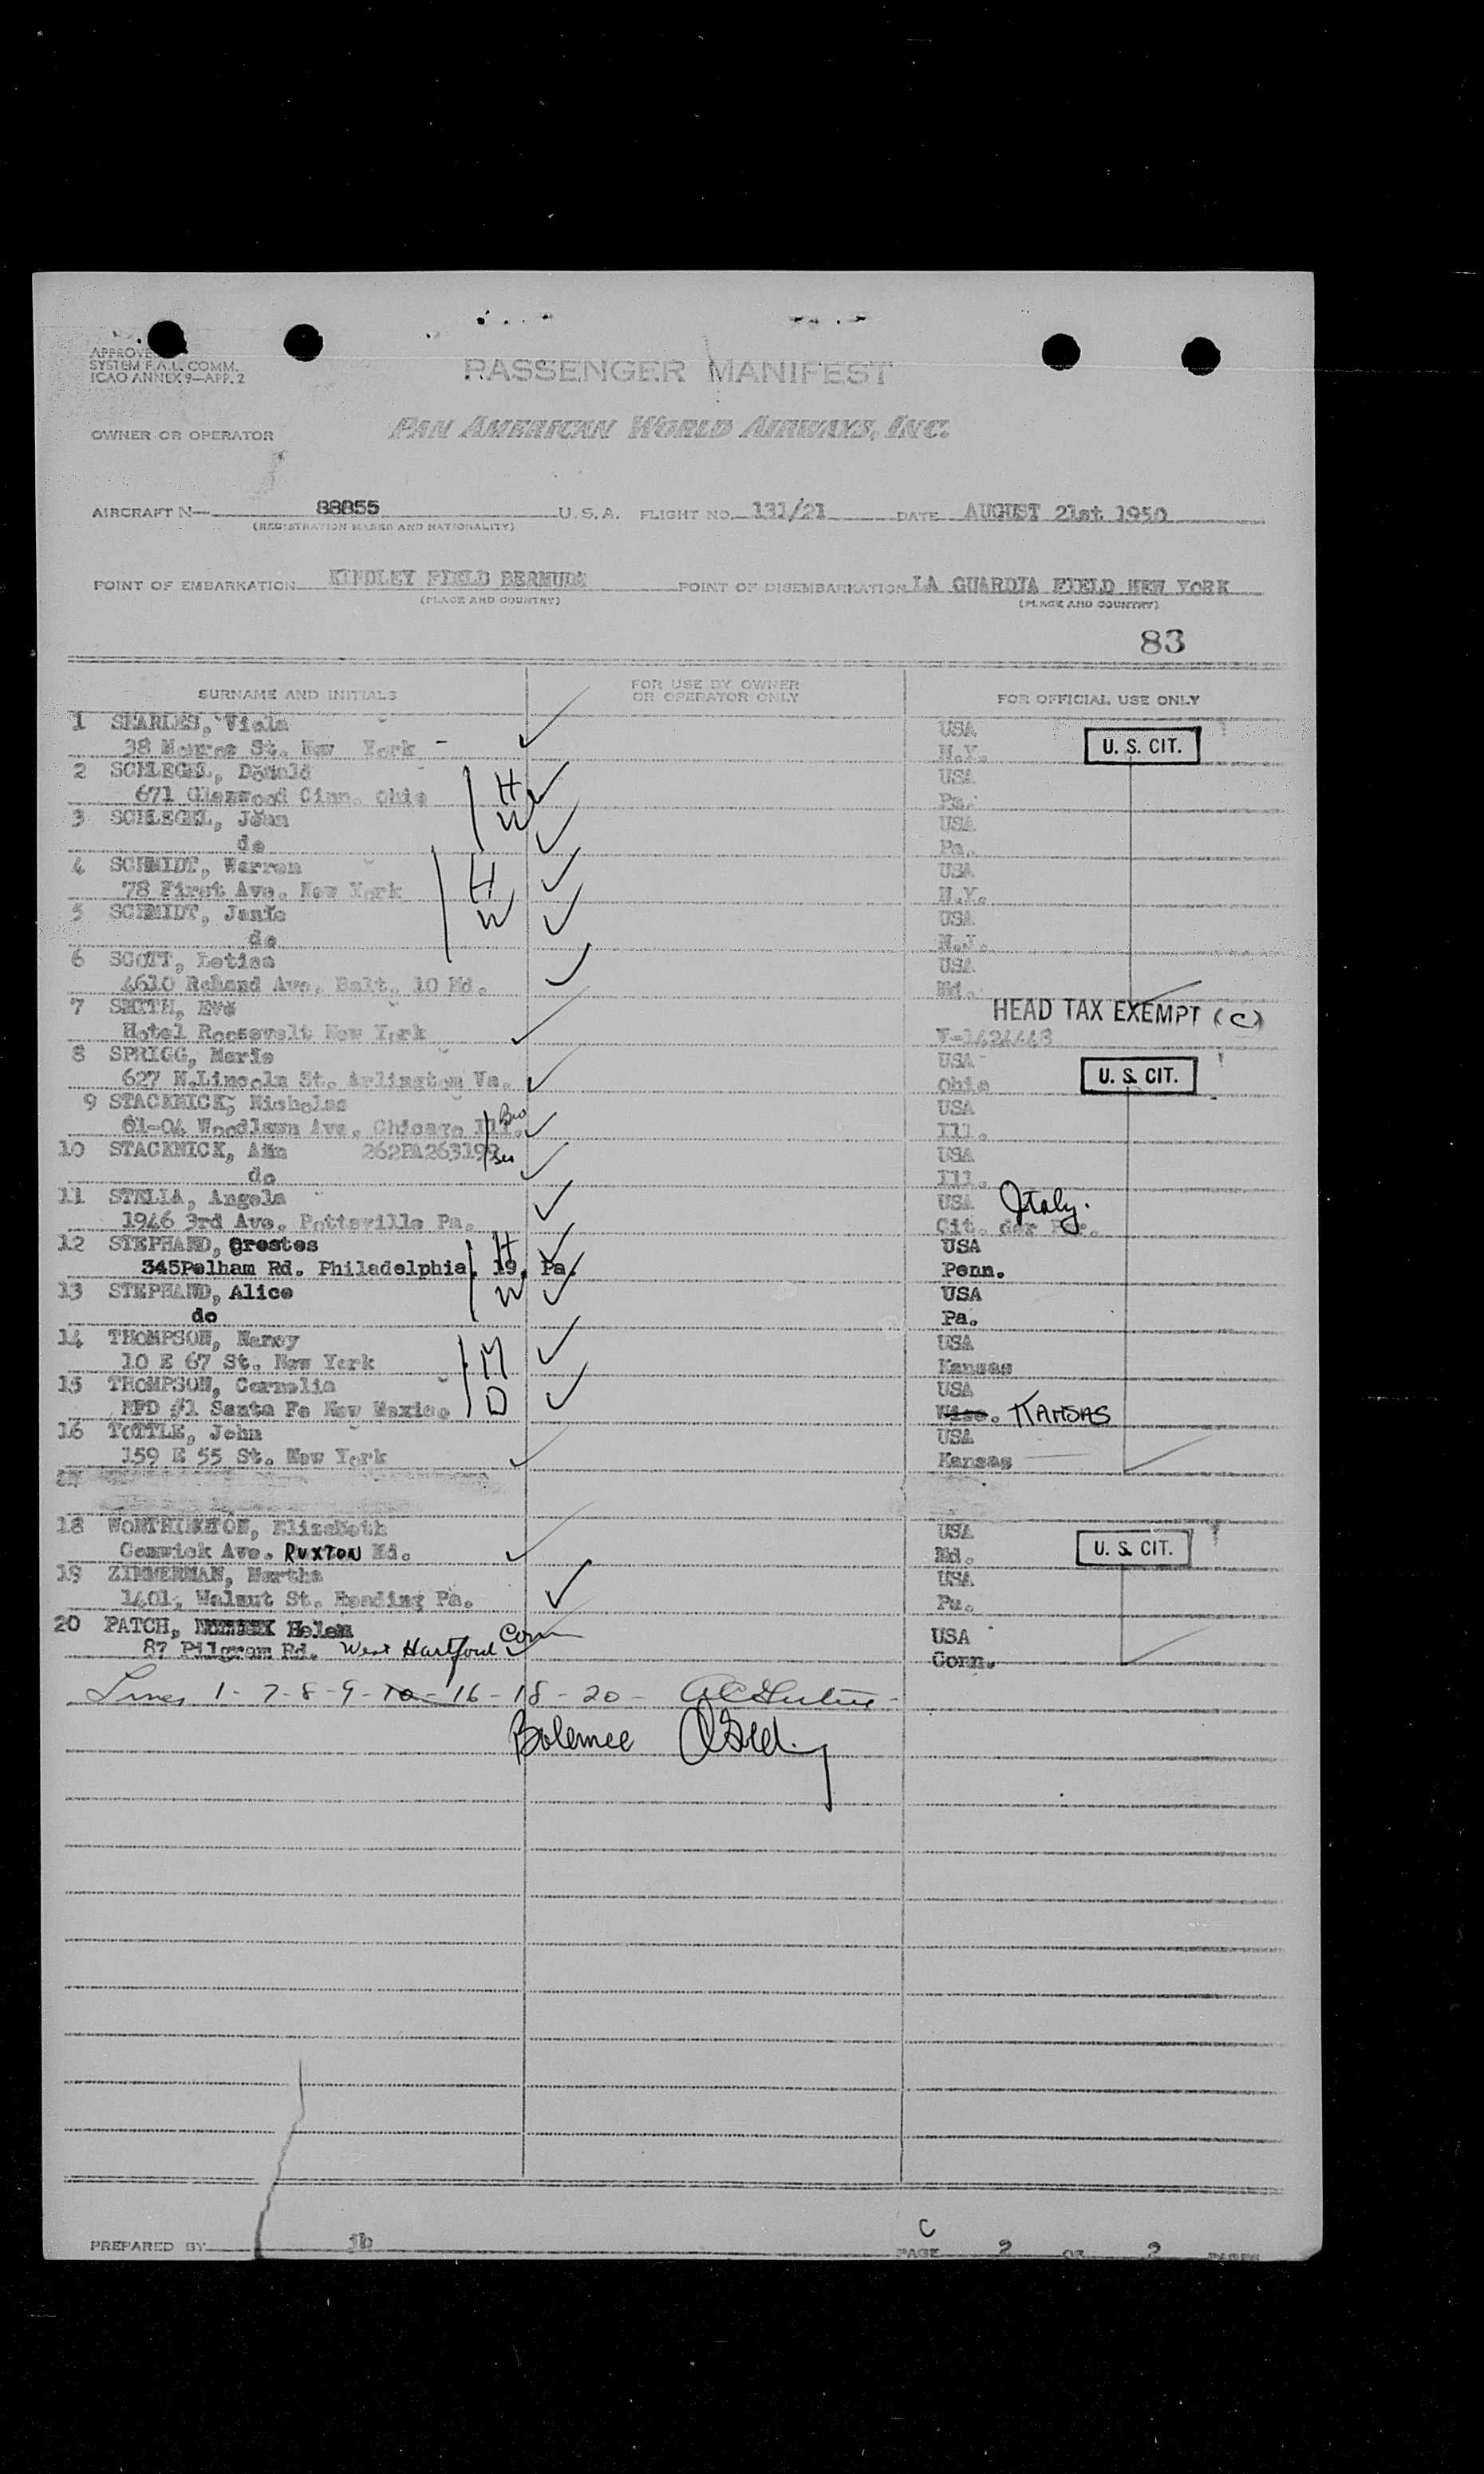 APPROVE
SYSTEM F.A.L. COMM.
ICAO ANNEX 9—APP. 2
PASSENGER MANIFEST
OWNER OR OPERATOR PAN AMERICAN WORLD AIRWAYS, INC.
AIRCRAFT N— 88855 U.S.A. FLIGHT NO. 131/21 DATE AUGUST 21st 1950
(REGISTRATION MARKS AND NATIONALITY)
POINT OF EMBARKATION KINDLEY FIELD BERMUDA POINT OF DISEMBARKATION LA GUARDIA FIELD NEW YORK
(PLACE AND COUNTRY) (PLACE AND COUNTRY)
83
SURNAME AND INITIALS FOR USE BY OWNER OR OPERATOR ONLY FOR OFFICIAL USE ONLY
1 SEARLES, Viola USA
38 Monroe St. New York - N.Y. U. S. CIT.
2 SCHLEGEL, Donald H USA
671 Glenwood Cinn. Ohio Pa.
3 SCHLEGEL, Joan W USA
do Pa.
4 SCHMIDT, Warren H USA
78 First Ave. New York N.Y.
5 SCHMIDT, Janie W USA
do N.J.
6 SCOTT, Letisa USA
4610 Ave. Balt. 10 Md. Md.
7 SMITH, Eve HEAD TAX EXEMPT (C)
Hotel Roosevelt New York V-1424443
8 SPRIGG, Marie USA
627 N.Lincoln St. Arlington Va. Ohio U. S. CIT.
9 STACKNICK, Nicholas USA
61-04 Woodlawn Ave. Chicago Ill. Bro Ill.
10 STACKNICK, Ann 262PA263199 Sis USA
do Ill.
11 STELIA, Angela USA Italy.
1946 3rd Ave. Pottsville Pa. Cit. der
12 STEPHANO, Orestes H USA
345Pelham Rd. Philadelphia, 19, Pa. Penn.
13 STEPHANO, Alice W USA
do Pa.
14 THOMPSON, Nancy M USA
10 E 67 St. New York Kansas
15 THOMPSON, Cornelia D USA
RFD #1 Santa Fe New Mexico Wisc. KANSAS
16 TOTTLE, John USA
159 E 55 St. New York Kansas
17
18 WORTHINGTON, Elizabeth USA
Ave. RUXTON Md. Md. U. S. CIT.
19 ZIMMERMAN, Martha USA
1401, Walnut St. Reading Pa. Pa.
20 PATCH, Helen USA
87 Pilgrem Rd. West Hartford Conn Conn.
Lines 1-7-8-9-10-16-18-20-
Balance
PREPARED BY jb C PAGE 2 OF 2 PAGES